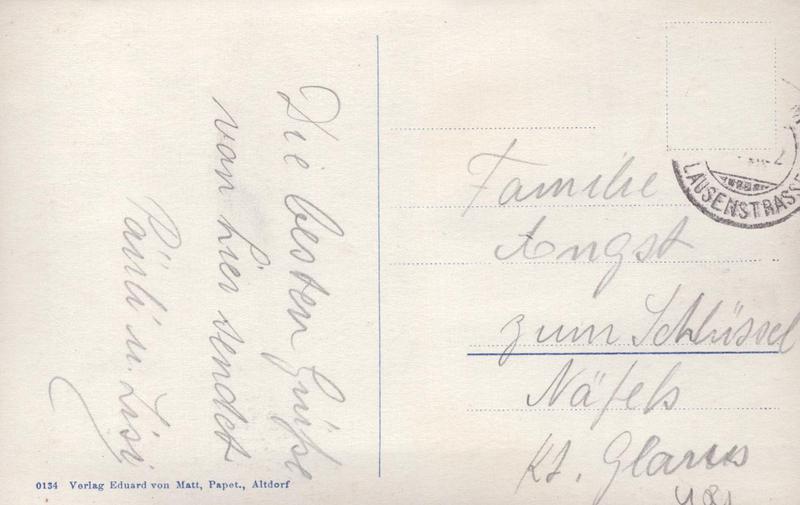 Die besten Grüße
von hier sendet
Päuli u. Lisi
Familie
Angst
zum Schlüssel
Näfels
Kt. Glarus
LAUSENSTRASSE
0134 Verlag Eduard von Matt, Papet., Altdorf